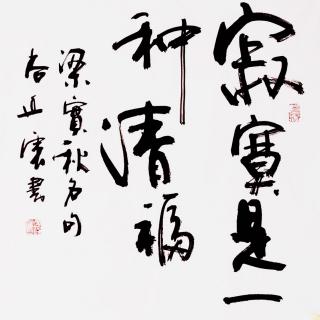 寂寞是一
种清福
梁實秋名句
書